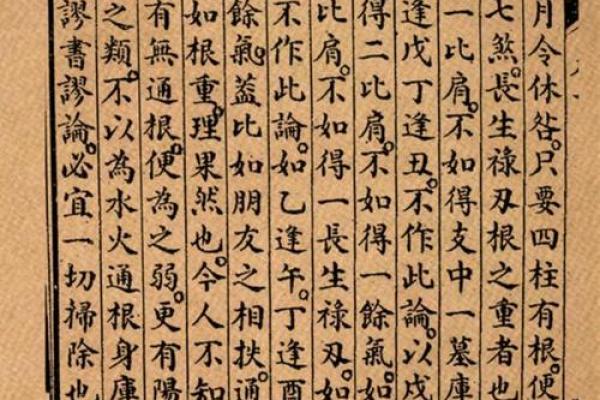 月令休咎。只要四柱有根。便
七煞。長生祿刃根之重者也
一比肩。不如得支中一墓庫
逢戊丁逢丑。不作此論。以戌
得二比肩。不如得一餘氣。如
比肩。不如得一長生祿刃。如
不作此論。如乙逢午。丁逢酉
餘氣。蓋比如朋友之相扶。通
如根重。理果然也。今人不知
有無通根。便為之弱。更有陽
之類。不以為水火通根身庫
謬書謬論。必宜一切掃除也